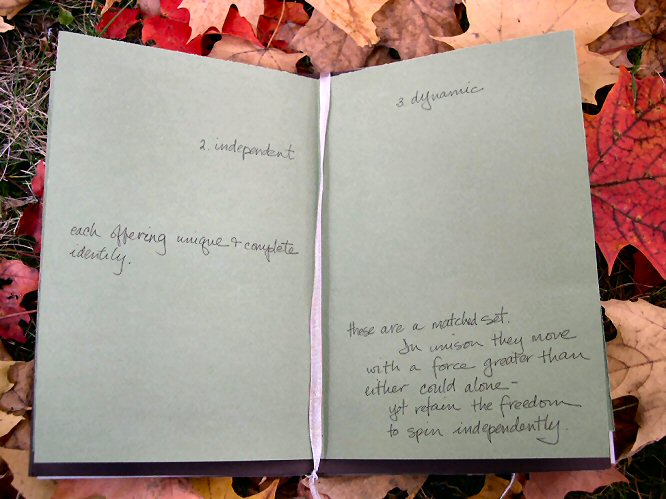 2. independent
each offering unique & complete
identity.
3 dynamic
these are a matched set.
In unison they move
with a force greater than
either could alone -
yet retain the freedom
to spin independently.